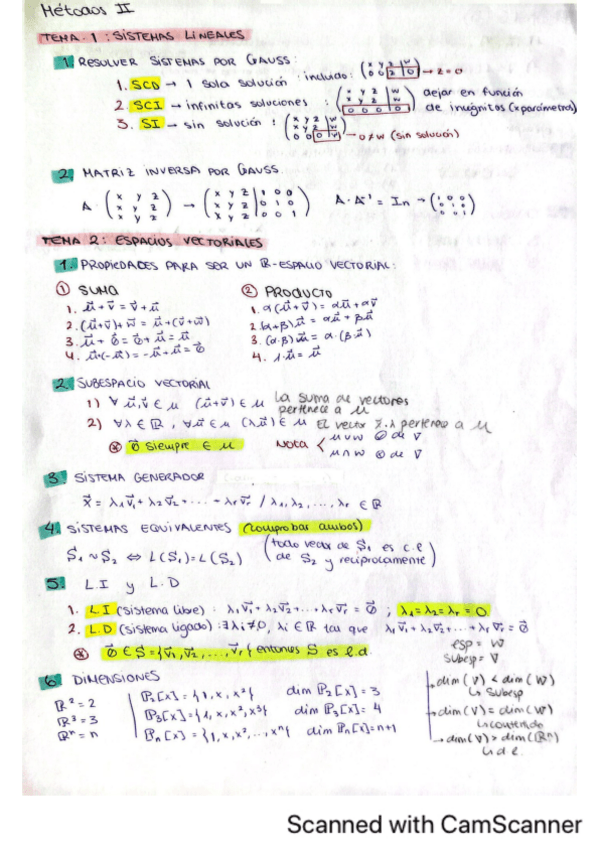 Métodos II
TEMA 1: SISTEMAS LINEALES
1. RESOLVER SISTEMAS POR GAUSS:
1. SCD → 1 sola solución incluido: (x y z | w / 0 0 z | 0) → z = 0
2. SCI → infinitas soluciones : (x y z | w / x y z | w / 0 0 0 | 0) dejar en función de incógnitas (αparámetros)
3. SI → sin solución : (x y z | w / x y z | w / 0 0 0 | w) → 0 ≠ w (sin solución)
2. MATRIZ INVERSA POR GAUSS.
A · (x y z / x y z / x y z) → (x y z | 1 0 0 / x y z | 0 1 0 / x y z | 0 0 1) A · A⁻¹ = In → (1 0 0 / 0 1 0 / 0 0 1)
TEMA 2: ESPACIOS VECTORIALES
1. PROPIEDADES PARA SER UN ℝ-ESPACIO VECTORIAL:
① SUMA
1. u⃗ + v⃗ = v⃗ + u⃗
2. (u⃗+v⃗)+w⃗ = u⃗+(v⃗+w⃗)
3. u⃗ + 0⃗ = 0⃗ + u⃗ = u⃗
4. u⃗+(-u⃗) = -u⃗+u⃗ = 0⃗
② PRODUCTO
1. α(u⃗+v⃗) = αu⃗ + αv⃗
2. (α+β)u⃗ = αu⃗ + βu⃗
3. (α·β)u⃗ = α·(β·u⃗)
4. 1·u⃗ = u⃗
2. SUBESPACIO VECTORIAL
1) ∀ u⃗,v⃗ ∈ u (u⃗+v⃗) ∈ u La suma de vectores pertenece a u
2) ∀λ ∈ ℝ, ∀u⃗ ∈ u (λu⃗) ∈ u El vector x⃗·λ pertenece a u
⊛ 0⃗ siempre ∈ u
Nota < u ∪ w
u ∩ w
3. SISTEMA GENERADOR
x⃗ = λ₁v⃗₁ + λ₂v⃗₂ + ··· + λrv⃗r / λ₁, λ₂, ..., λr ∈ ℝ
4. SISTEMAS EQUIVALENTES (comprobar ambos)
S₁ ~ S₂ ⇔ L(S₁) = L(S₂) (todo vector de S₁ es c.l de S₂ y recíprocamente)
5. L.I y L.D
1. L.I (sistema libre) : λ₁v⃗₁ + λ₂v⃗₂ + ... + λrv⃗r = 0⃗ ; λ₁ = λ₂ = λr = 0
2. L.D (sistema ligado) : ∃λi ≠ 0, λi ∈ ℝ tal que λ₁v⃗₁ + λ₂v⃗₂ + ··· + λrv⃗r = 0⃗
⊛ 0⃗ ∈ S = {v⃗₁, v⃗₂, ..., v⃗r} entonces S es l.d.
esp = W
subesp = V
6. DIMENSIONES
ℝ² = 2
ℝ³ = 3
ℝⁿ = n
P₂[x] = {1, x, x²} dim P₂[x] = 3
P₃[x] = {1, x, x², x³} dim P₃[x] = 4
Pn[x] = {1, x, x², ..., xⁿ} dim Pn[x] = n+1
→ dim(V) < dim(W)
↳ subesp
→ dim(V) = dim(W)
↳ contenido
→ dim(V) > dim(ℝⁿ)
↳ d.e.
Scanned with CamScanner